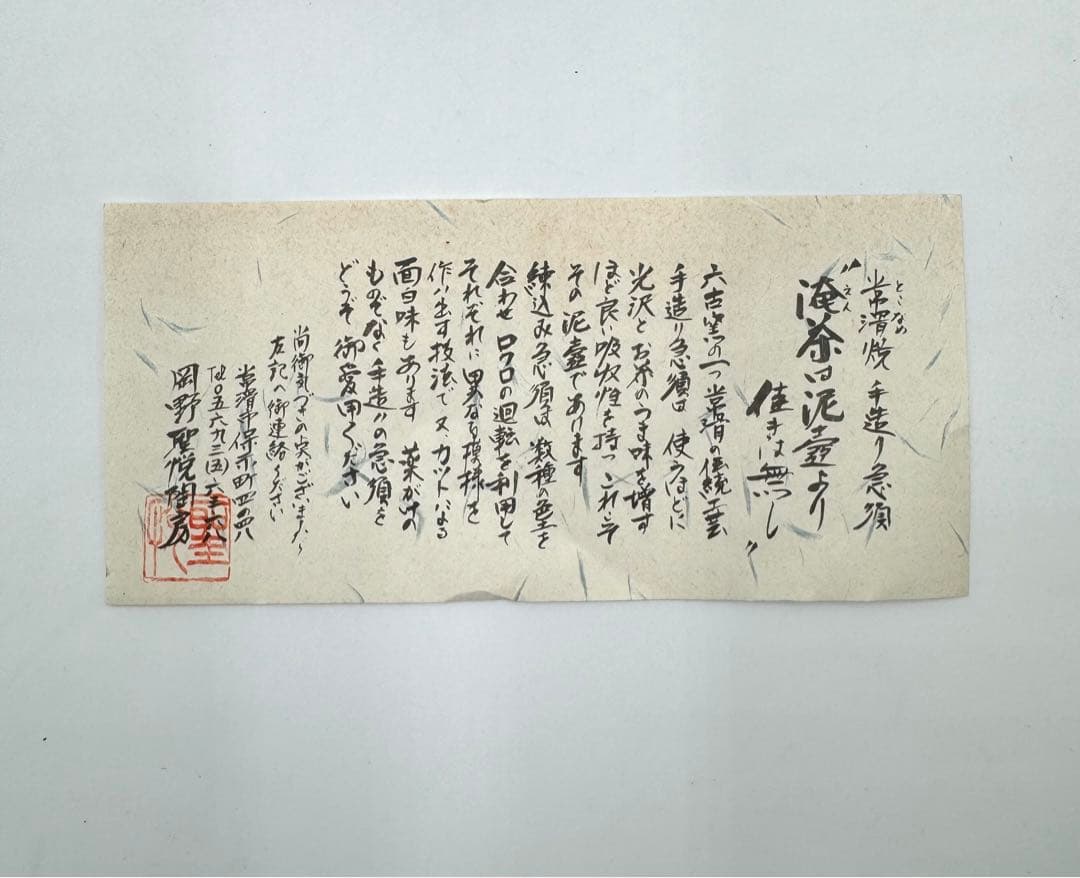 常滑焼 手造り急須
とこなめ
"淹茶は泥壺より
えん
佳きは無し"
六古窯の一つ常滑の伝統工芸
手造り急須は 使うほどに
光沢とお茶のうま味を増す
ほど良い吸収性を持つ これこそ
その泥壺であります
練込み急須は 数種の土を
合わせ ロクロの廻転を利用して
それぞれに異なり模様を
作り出す技法で 又 カットによる
面白味もあります 薬がけの
ものでなく手造りの急須を
どうぞ御愛用ください
尚御気づきの点がございましたら
左記へ御連絡ください
常滑市保示町四の四八
岡野聖悦陶房